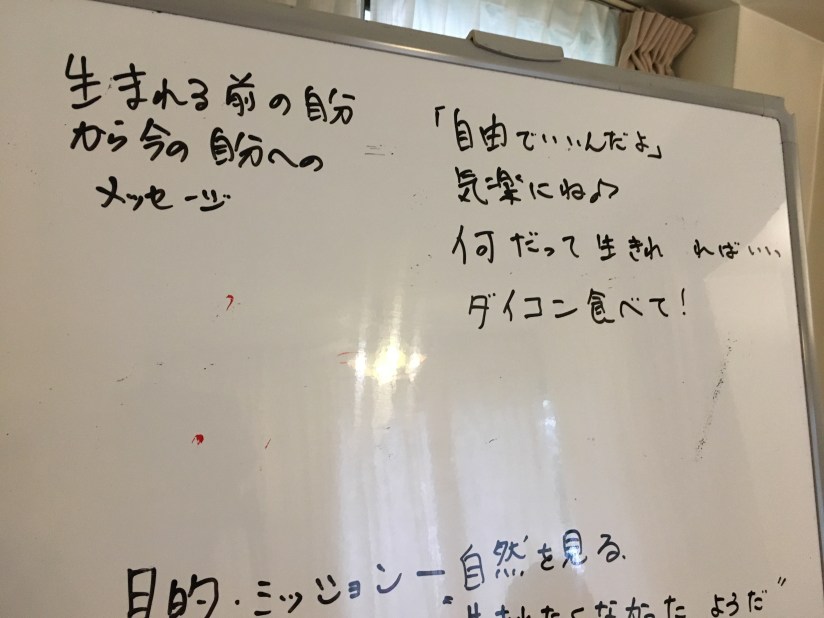 生まれる前の自分
から今の自分への
メッセージ
「自由でいいんだよ」
気楽にね♪
何だって生きれ ればいい
ダイコン食べて!
目的・ミッション ー 自然を見る.
"生まれたくなかった ようだ"